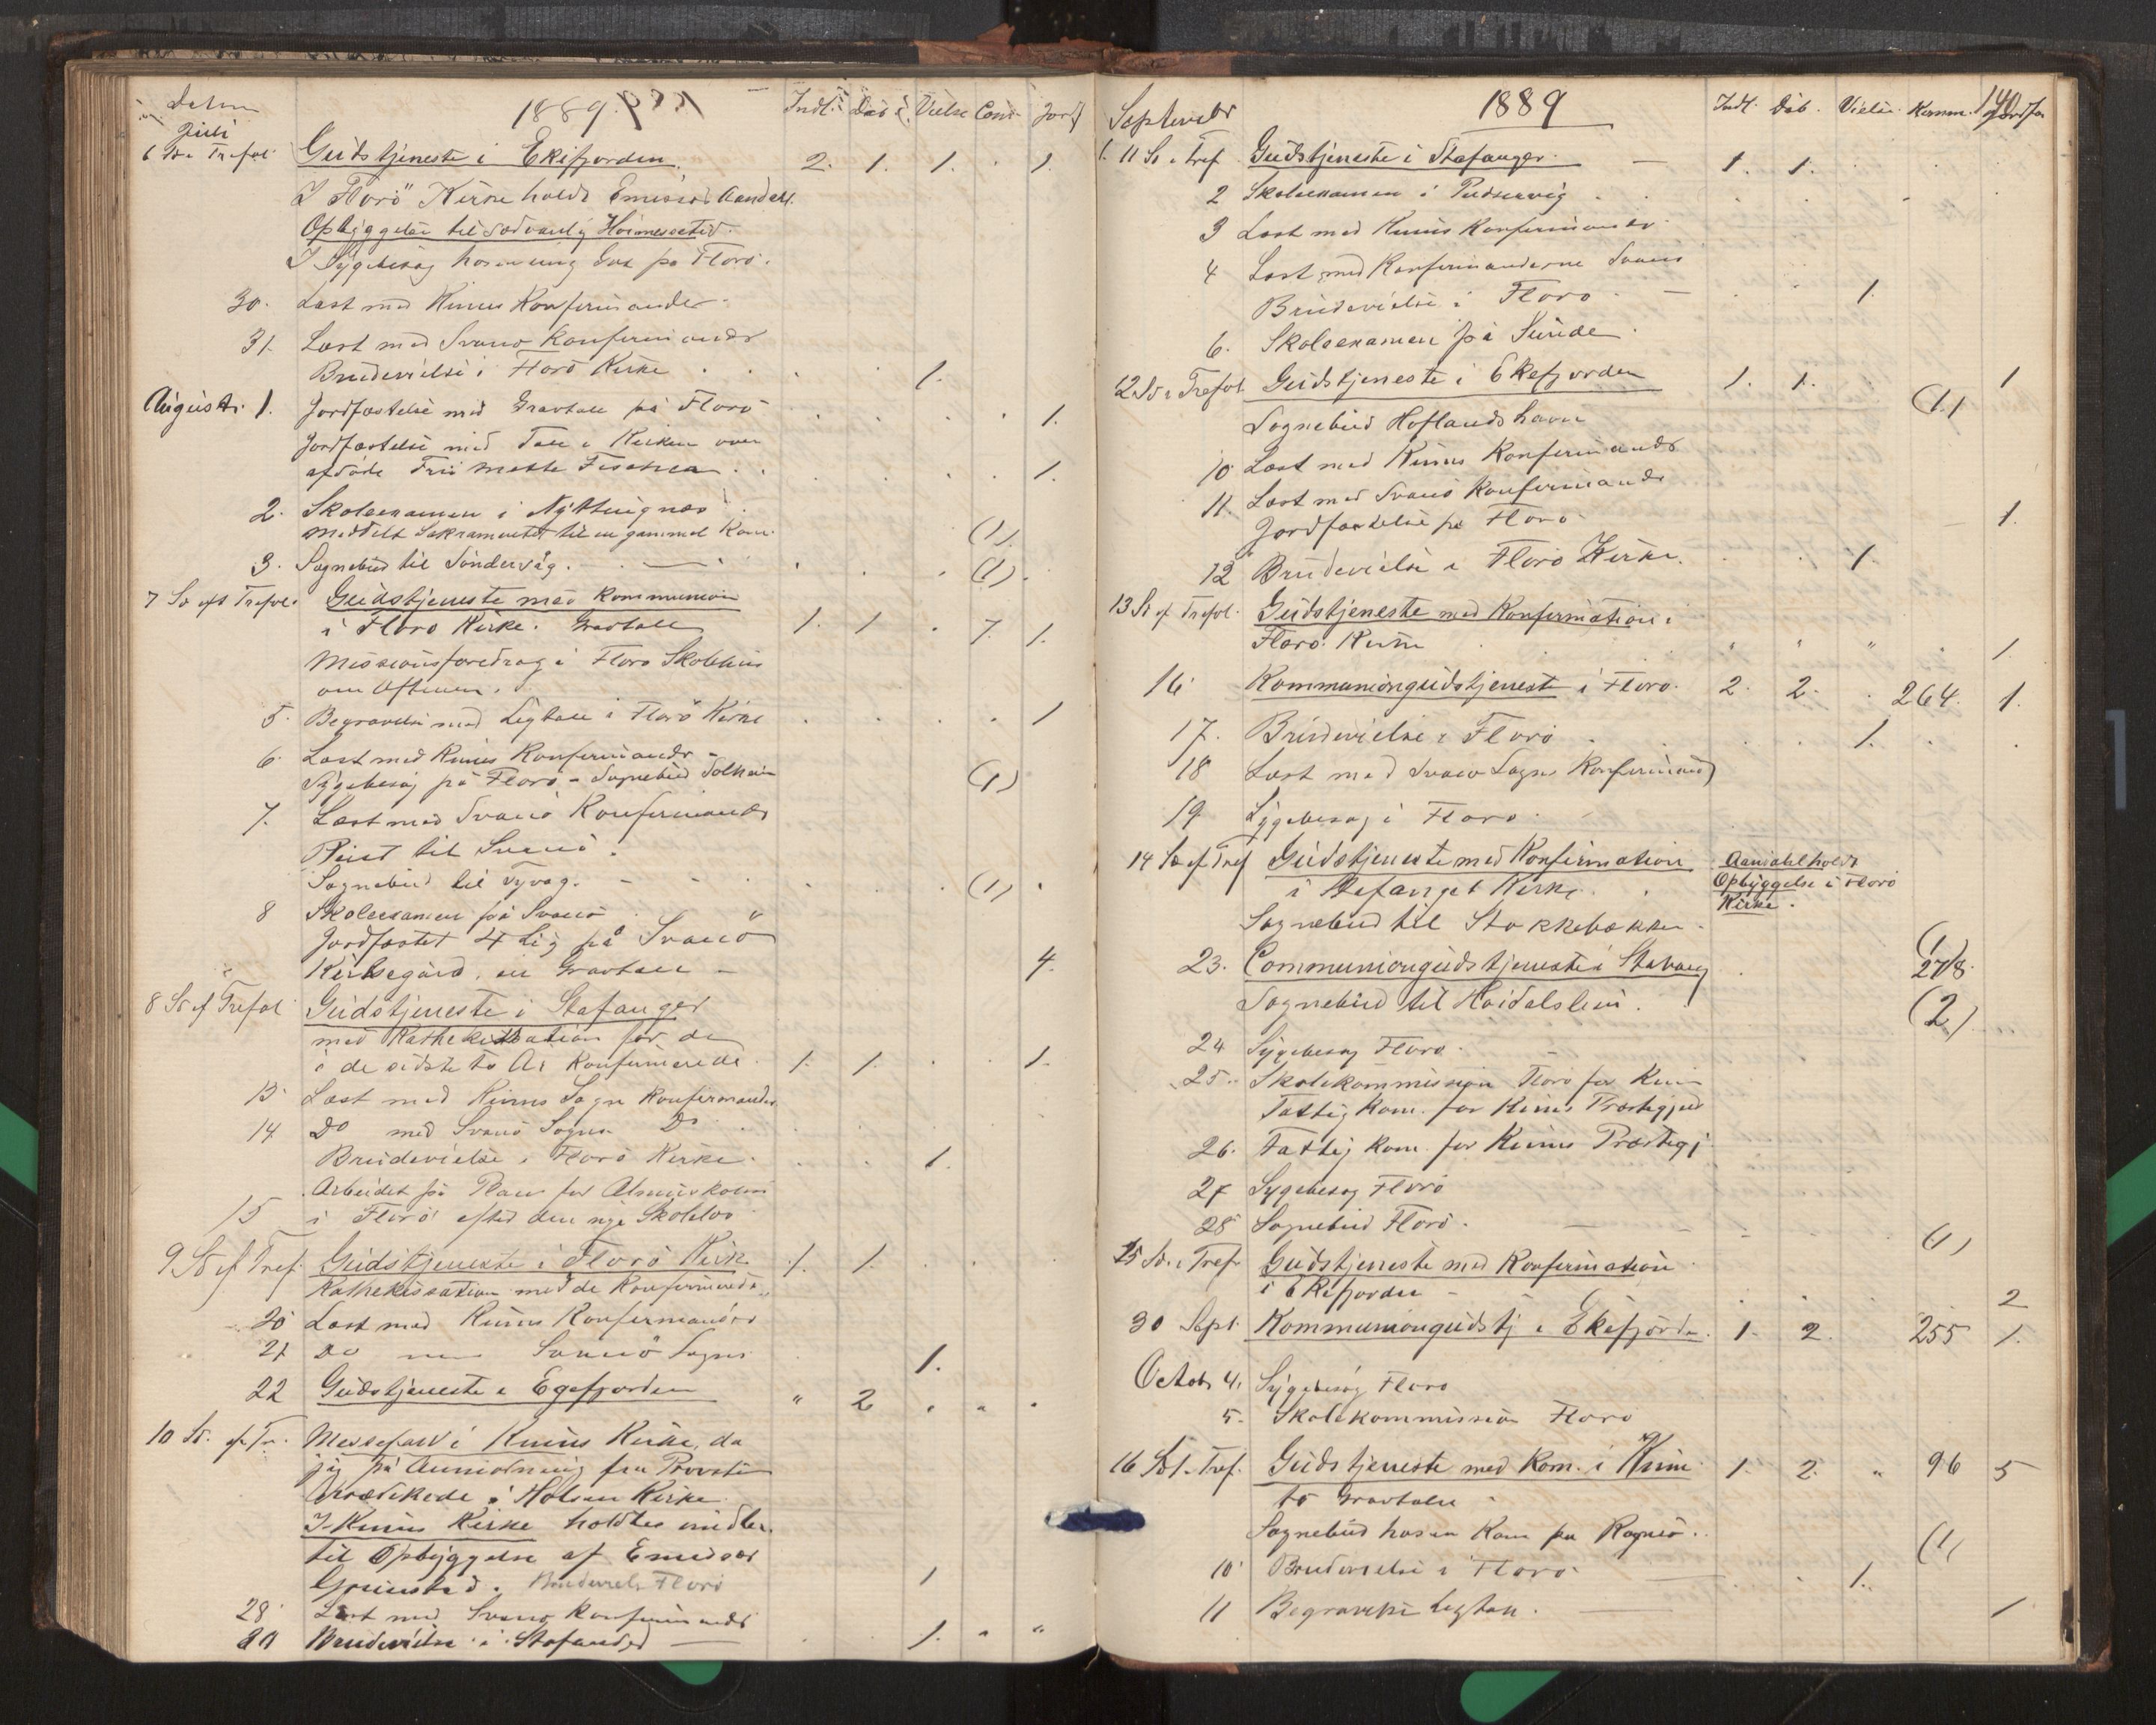 Datum 1889. Indl. Dåb. Vielse Com. Jordf
Juli
6 Sø. e Trefol. Gudstjeneste i Ekifjorden. 2. 1. 1. . 1.
I "Florö" Kirke holdt Emissær Aandahl
Opbyggelse til sædvanlig Høimessetid.
I Sygebesøg hos en ung Gut på Florö.
30. Læst med Kinns Konfirmander.
31. Læst med Svanø Konfirmander
Brudevielse i Florö Kirke . . . 1.
August. 1. Jordfæstelse med Gravtale på Florö . . . . 1.
Jordfæstelse med Tale i Kirken over
afdøde Fru Mette . . . . 1.
2. Skoleexamen i Nyttingnæs
meddelt Sakramentet til en gammel Kone. (1).
3. Sognebud til Søndervåg. . . . (1).
7 Sø eft Trefol. Gudstjeneste med Kommunion
i Florö Kirke. Gravtale 1. 1 . 7. 1.
Missionsforedrag i Florø Skolehus
om Aftenen.
5. Begravelse med Ligtale i Florö Kirke . . . . 1
6. Læst med Kinns Konfirmander -
Sygebesøg på Florö - Sognebud (1)
7. Læst med Svanö Konfirmander
Reist til Svanö.
Sognebud til . - . . . (1) .
8 Skoleexamen på Svanö
Jordfæstet 4 Lig på Svanö
Kirkegård, en Gravtale - 4.
8 Sø ef Trefol. Gudstjeneste i Stafanger
med Kathekisation for de
i de sidste to År Konfirmerede. 1. 1. . . 1.
13. Læst med Kinns Sogns Konfirmander
14. Do med Svanö Sogns Do.
Brudevielse i Florö Kirke. . . 1.
Arbeidet på Plan for Almueskolen
15 i Florö efter den nye Skolelov
9 Sø ef Tref. Gudstjeneste i Florö Kirke 1. 1. . .
Kathekisation med de Konfirmerede
20 Læst med Kinns Konfirmander
21 Do med Svanö Sogns 1.
22 Gudstjeneste i Egefjorden " 2 " " "
10 Sø. ef Tr. Messefald i Kinns Kirke, da
jeg på Anmodning fra Provsten
prædikede i Holsen Kirke.
I Kinns Kirke holdtes imidler-
til Opbyggelse af Emissær
Grimstad. Brudeviels Florö 1
28. Læst med Svanø Konfirmander
Brudevielse i Stafanger — . . 1. " "
Septembr 1889 Indl. Dåb. Vielse. Komm. Jordfæ 140
1. 11 Sø. e Tref. Gudstjeneste i Stafanger. — 1. 1. . .
2 Skoleexamen i . . . .
3 Læst med Kinns Konfirmander
4 Læst med Konfirmanderne Svanö
Brudevielse i Florö. — . . 1.
6. Skoleexamen på Sunde.
12 Sø. e Trefol. Gudstjeneste i Ekefjorden 1. 1. 1
Sognebud Hoflandshavn (1.)
10 Læst med Kinns Konfirmander
11. Læst med Svanö Konfirmander
Jordfæstelse på Florö 1.
12 Brudevielse i Florö Kirke. . . 1.
13 Sø ef Trefol. Gudstjeneste med Konfirmation i
Florö. Kinn " " " . 1.
16 Kommuniongudstjeneste i Florö. 2. 2. . 264. 1.
17. Brudevielse i Florö . . . 1. . .
18 Læst med Svanø Sogns Konfirmand
19 Sygebesøg i Florö.
14 Sø ef Tref Gudstjeneste med Konfirmation Aandahl holdt
i Stafanger Kirke. . Opbyggelse i Florö
Kirke.
Sognebud til Stokkebækken. (1
23. Communiongudstjeneste i Stavang 278.
Sognebud til Høidalsheim. (2)
24 Sygebesøg Florö.
25. Skolekommission Florö for Kinn
Fattig kom. for Kinns Præstegjeld
26. Fattig kom. for Kinns Præstegj
27 Sygebesøg Florö
28 Sognebud Florö. — (1)
15 Sø. e Tref. Gudstjeneste med Konfirmation
i Ekefjorden - . . . . 2
30 Sept. Kommuniongudstj i Ekefjorden. 1. 2. 255 1.
Octob. 4. Sygebesøg Florö
5. Skolekommission Florö
16 Sø e. Tref. Gudstjeneste med Kom. i Kinn 1. 2. " 96 5
to Gravtaler
Sognebud hos en Kone på . (1)
10 Brudevielse i Florö — . . 1.
11 Begravelse Ligtale. — 1